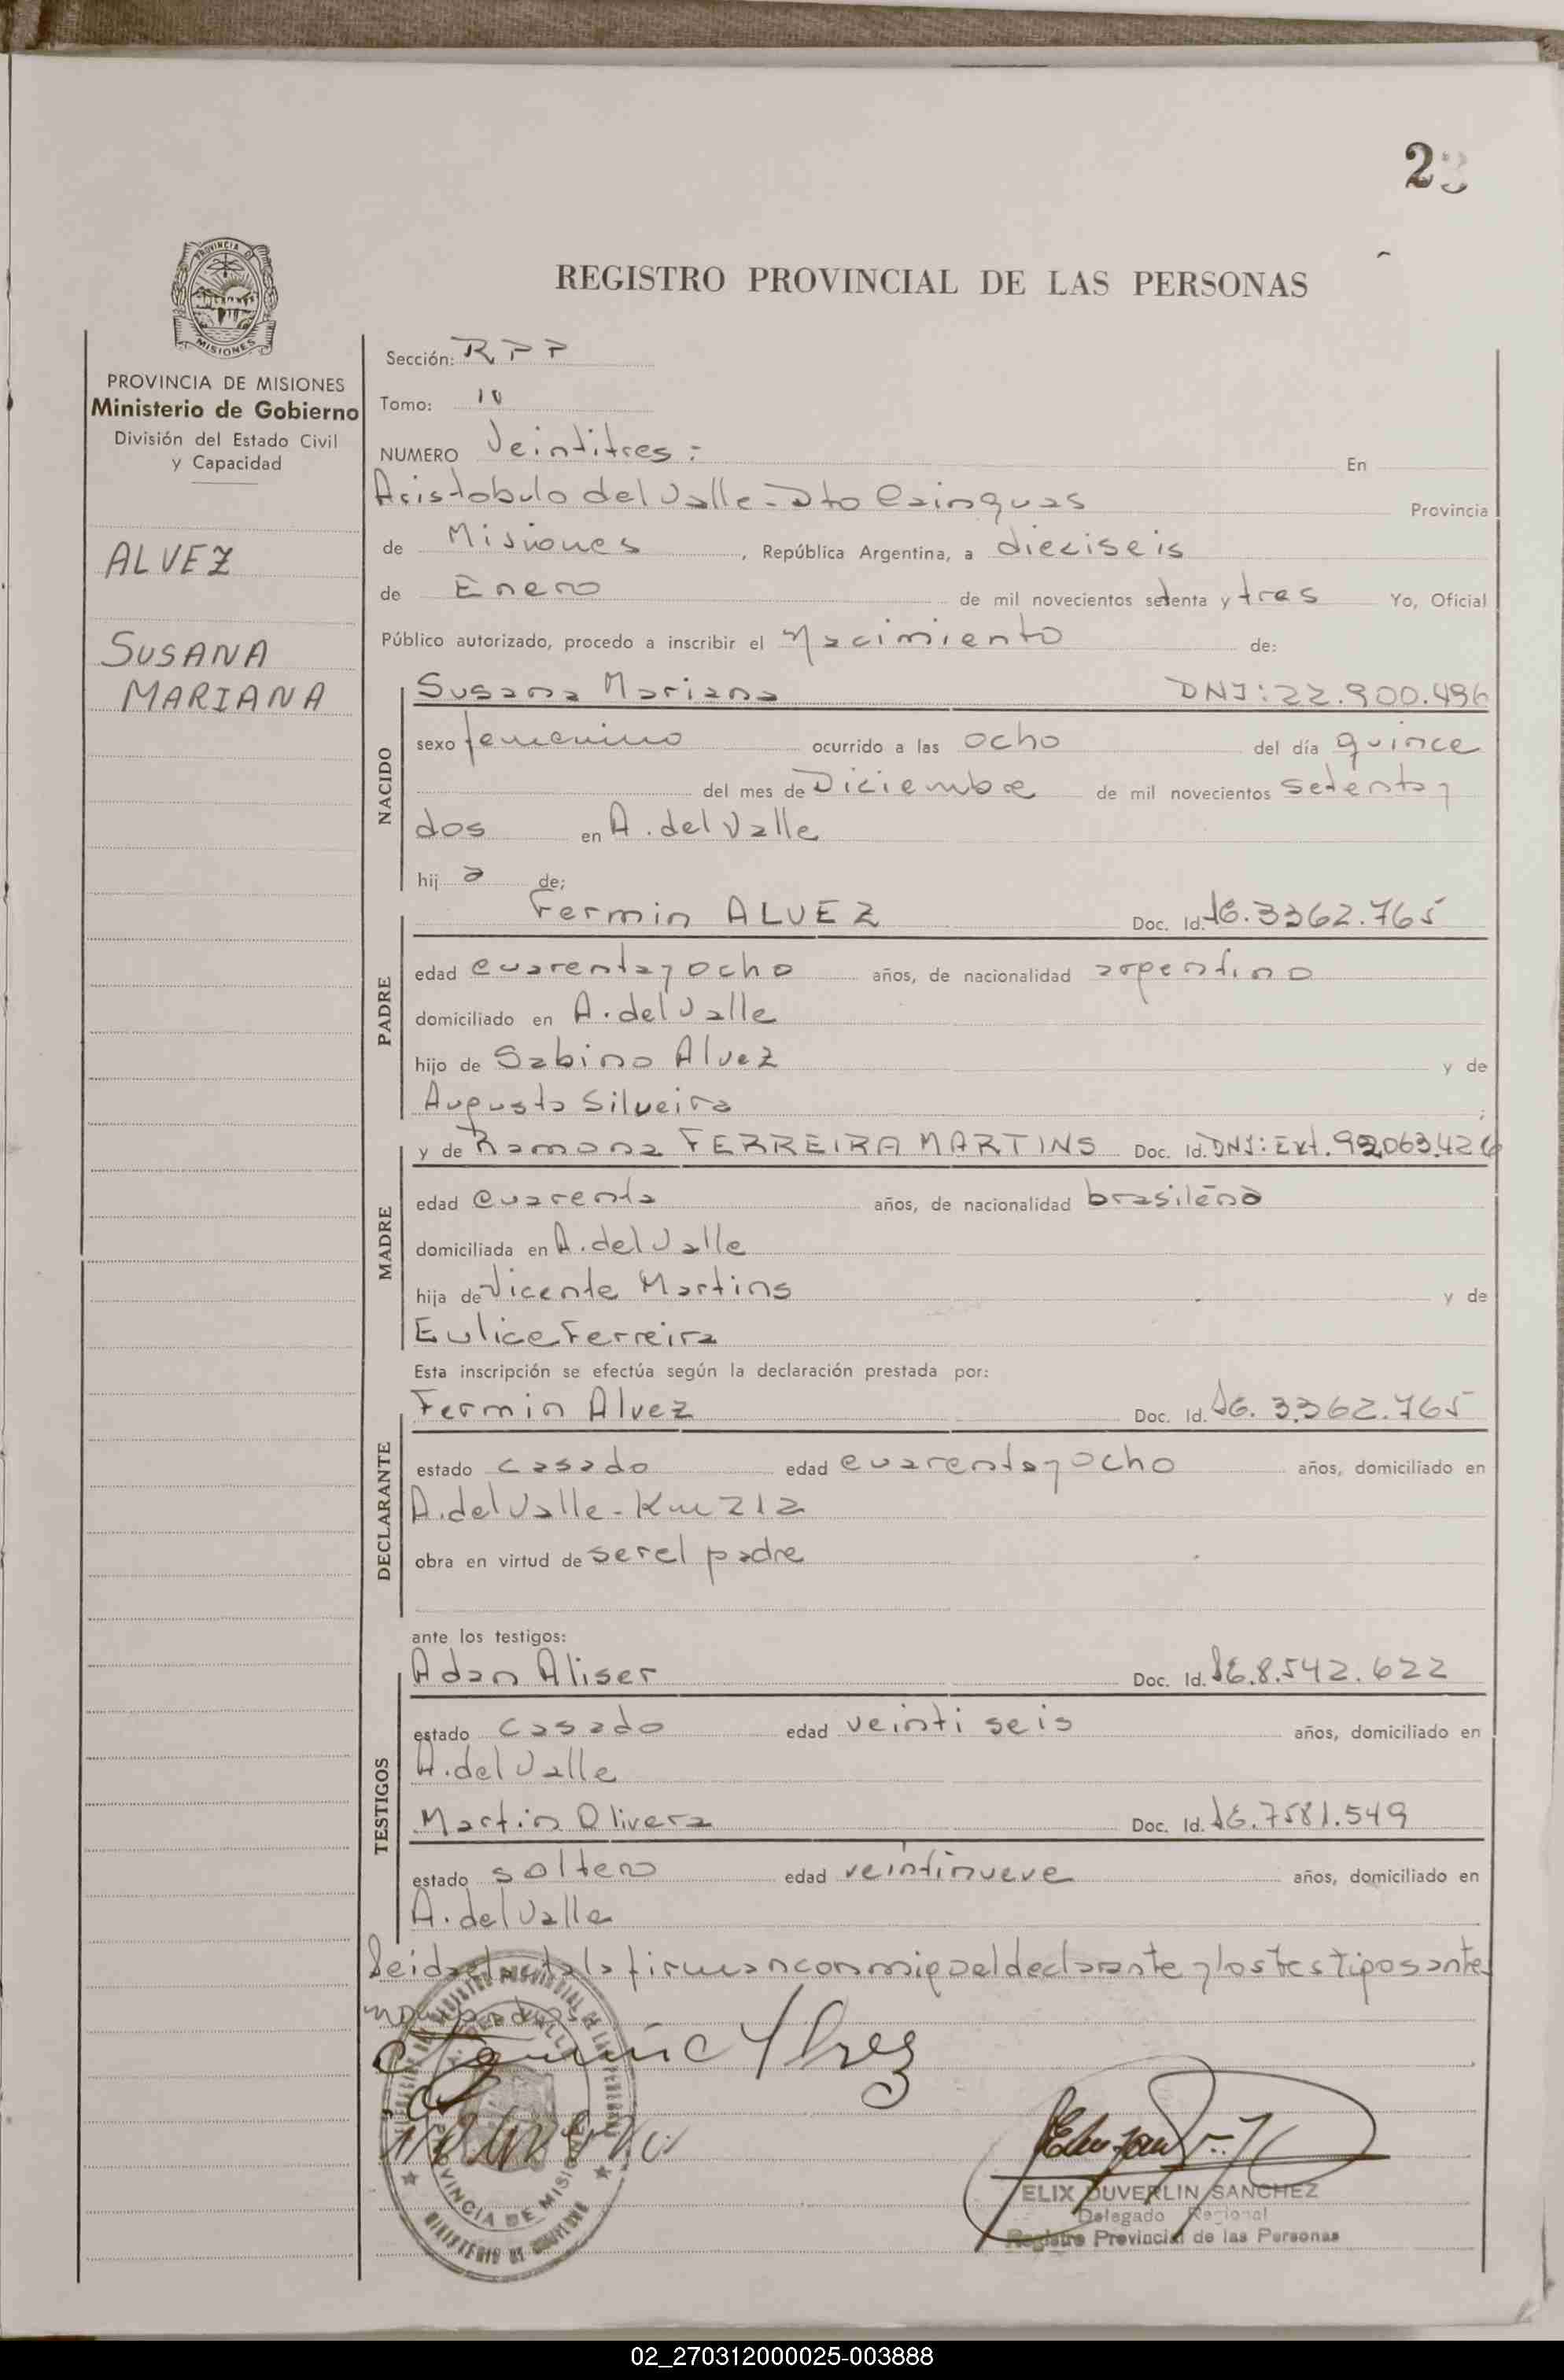 23
REGISTRO PROVINCIAL DE LAS PERSONAS
PROVINCIA DE MISIONES
Ministerio de Gobierno
División del Estado Civil
y Capacidad
ALVEZ
SUSANA
MARIANA
Sección: RPP
Tomo: 10
NUMERO Veintitres : En
Aristobulo del Valle - Dto Cainguas Provincia
de Misiones, República Argentina, a dieciseis
de Enero de mil novecientos setenta y tres Yo, Oficial
Público autorizado, procedo a inscribir el Nacimiento de:
NACIDO
Susana Mariana DNI: 22.900.496
sexo femenino ocurrido a las ocho del día quince
del mes de Diciembre de mil novecientos setenta y
dos en A. del Valle
hija de;
PADRE
Fermin ALVEZ Doc. Id. 3362.765
edad cuarenta y ocho años, de nacionalidad argentino
domiciliado en A. del Valle
hijo de Sabino Alvez y de
Augusta Silveira ;
MADRE
y de Ramona FERREIRA MARTINS Doc. Id. DNI: Ext. 92.063.426
edad cuarenta años, de nacionalidad brasileña
domiciliada en A. del Valle
hija de Vicente Martins y de
Eulice Ferreira
Esta inscripción se efectúa según la declaración prestada por:
DECLARANTE
Fermin Alvez Doc. Id. 3.362.765
estado casado edad cuarenta y ocho años, domiciliado en
A. del Valle - Km 212
obra en virtud de ser el padre
ante los testigos:
TESTIGOS
Adan Aliser Doc. Id. 8.542.622
estado casado edad veinti seis años, domiciliado en
A. del Valle
Martin Olivera Doc. Id. 7581.549
estado soltero edad veintinueve años, domiciliado en
A. del Valle
Leida el acta la firman conmigo el declarante y los testigos antes
nombrados
ELIX DUVERLIN SANCHEZ
Delegado Regional
Registro Provincial de las Personas
PROVINCIA DE MISIONES
02_270312000025-003888